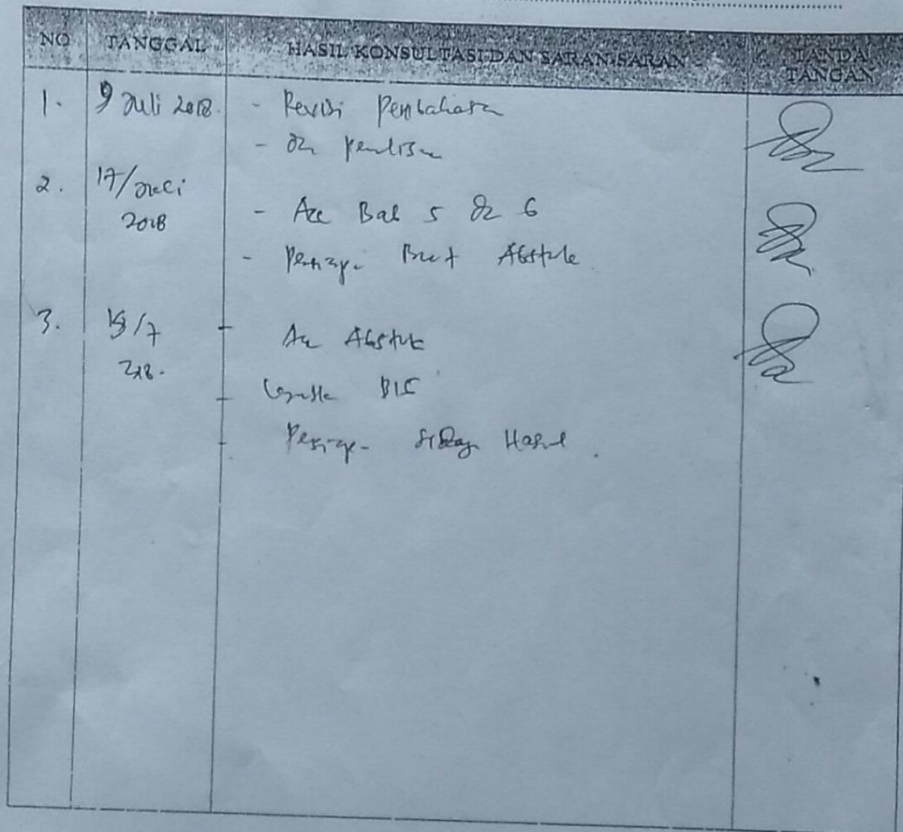 NO TANGGAL HASIL KONSULTASI DAN SARAN-SARAN TANDA TANGAN
1. 9 Juli 2018. - Revisi Pembahasan
- dan penulisan
2. 17/Juli 2018 - Acc Bab 5 dan 6
- Persiapan Buat Abstrak
3. /7 218. - Acc Abstrak
-
- Persiapan Sidang Hasil.